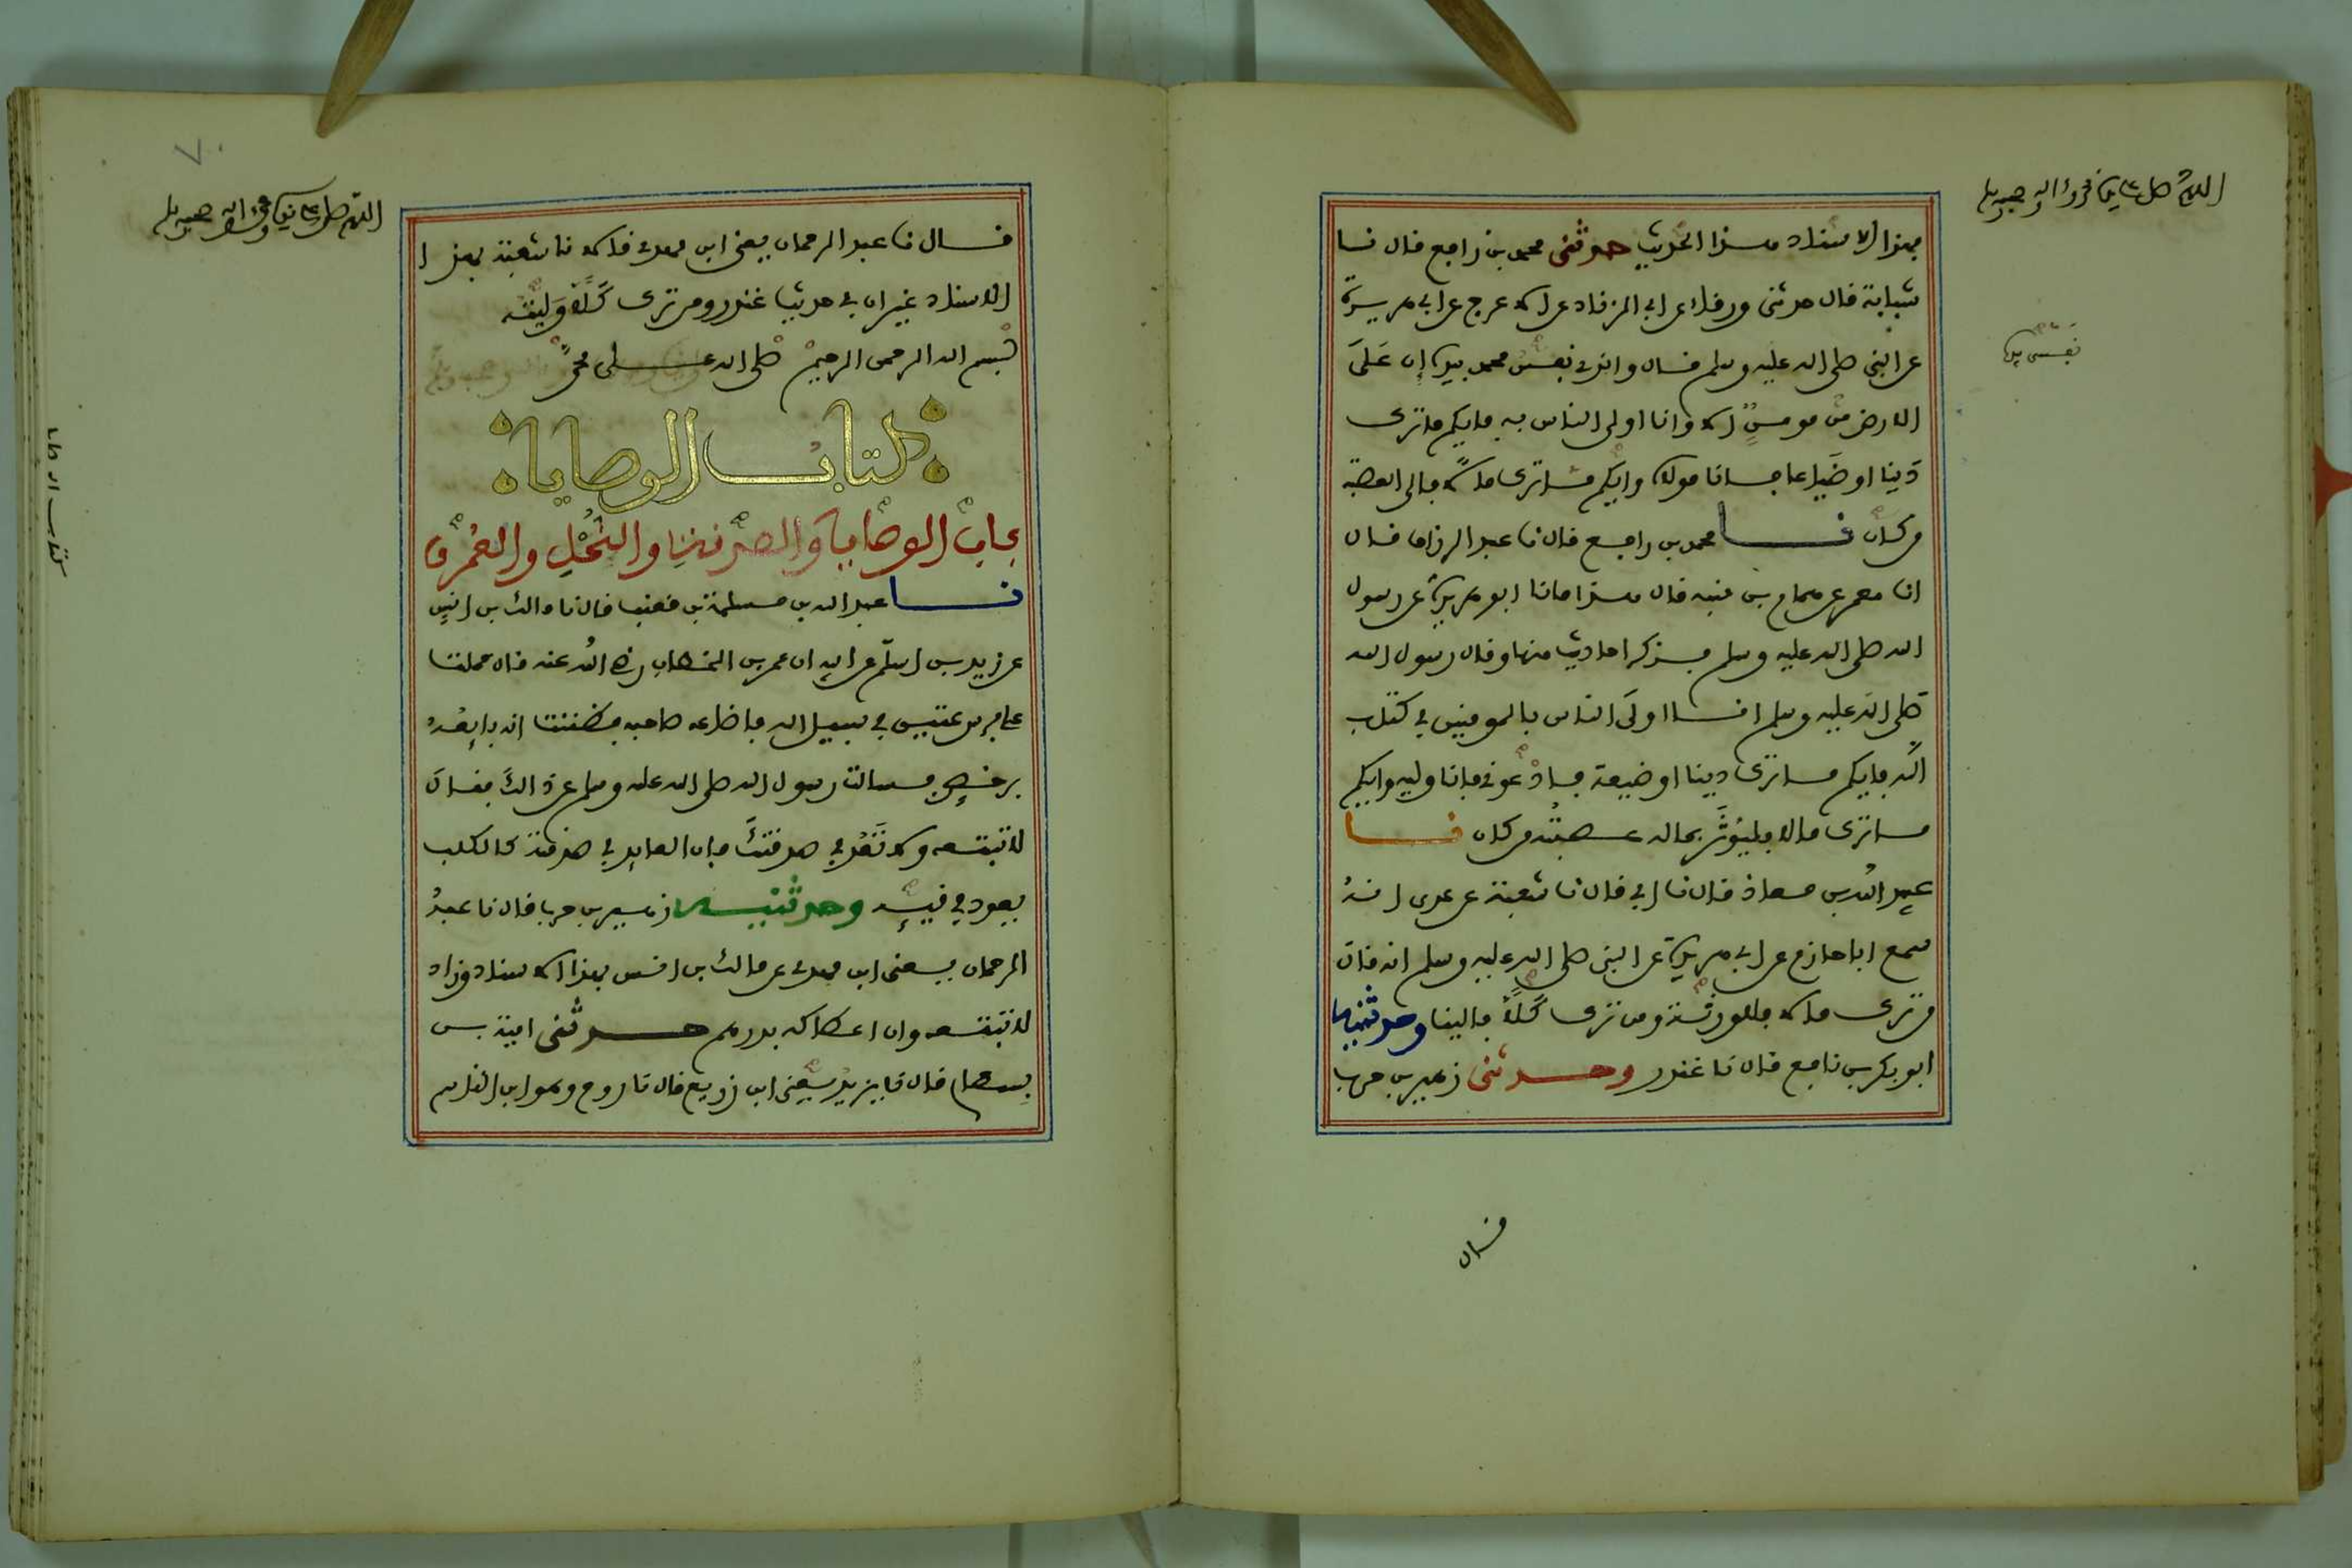 اللهم صل على نبينا محمد واله وصحبه وسلم
بهذا الاسناد هذا الحديث حدثنى محمد بن رافع قال نا
شبابة قال حدثنى ورقاء عن ابى الزناد عن الاعرج عن ابى هريرة
عن النبى صلى الله عليه وسلم قال والذى نفس محمد بيده ان على
نفسى بيده
الارض من مومن الا وانا اولى الناس به فايكم ما ترك
دينا او ضياعا فانا مولاه وايكم ما ترك مالا فالى العصبة
من كان نا محمد بن رافع قال نا عبد الرزاق قال
انا معمر عن همام بن منبه قال هذا ما نا ابو هريرة عن رسول
الله صلى الله عليه وسلم فذكر احاديث منها وقال رسول الله
صلى الله عليه وسلم انا اولى الناس بالمومنين فى كتاب
الله فايكم ما ترك دينا او ضيعة فادعونى فانا وليه وايكم
ما ترك مالا فليوثر بماله عصبته من كان نا
عبيد الله بن معاذ قال نا ابى قال نا شعبة عن عدى انه
سمع ابا حازم عن ابى هريرة عن النبى صلى الله عليه وسلم انه قال
من ترك مالا فللورثة ومن ترك كلا فالينا وحدثنيه
ابو بكر بن نافع قال نا غندر وحدثنى زهير بن حرب
قال
٧٠
اللهم صل على نبينا محمد واله وصحبه وسلم
قال نا عبد الرحمان يعنى ابن مهدى قالا نا شعبة بهذا
الاسناد غير ان فى حديث غندر ومن ترك كلا وليته
بسم الله الرحمن الرحيم صلى الله على محمد
كتاب الوصايا
باب الوصايا والصدقة والنحل والعمرى
نا عبد الله بن مسلمة بن قعنب قال نا مالك بن انس
عن زيد بن اسلم عن ابيه ان عمر بن الخطاب رضى الله عنه قال حملت
على فرس عتيق فى سبيل الله فاضاعه صاحبه فظننت انه بايعه
برخص فسالت رسول الله صلى الله عليه وسلم عن ذالك فقال
لا تبتعه ولا تعد فى صدقتك فان العايد فى صدقته كالكلب
يعود فى قيئه وحدثنيه زهير بن حرب قال نا عبد
الرحمان يعنى ابن مهدى عن مالك بن انس بهذا الاسناد وزاد
لا تبتعه وان اعطاكه بدرهم حدثنى امية بن
بسطام قال نا يزيد يعنى ابن زريع قال نا روح وهو ابن القاسم